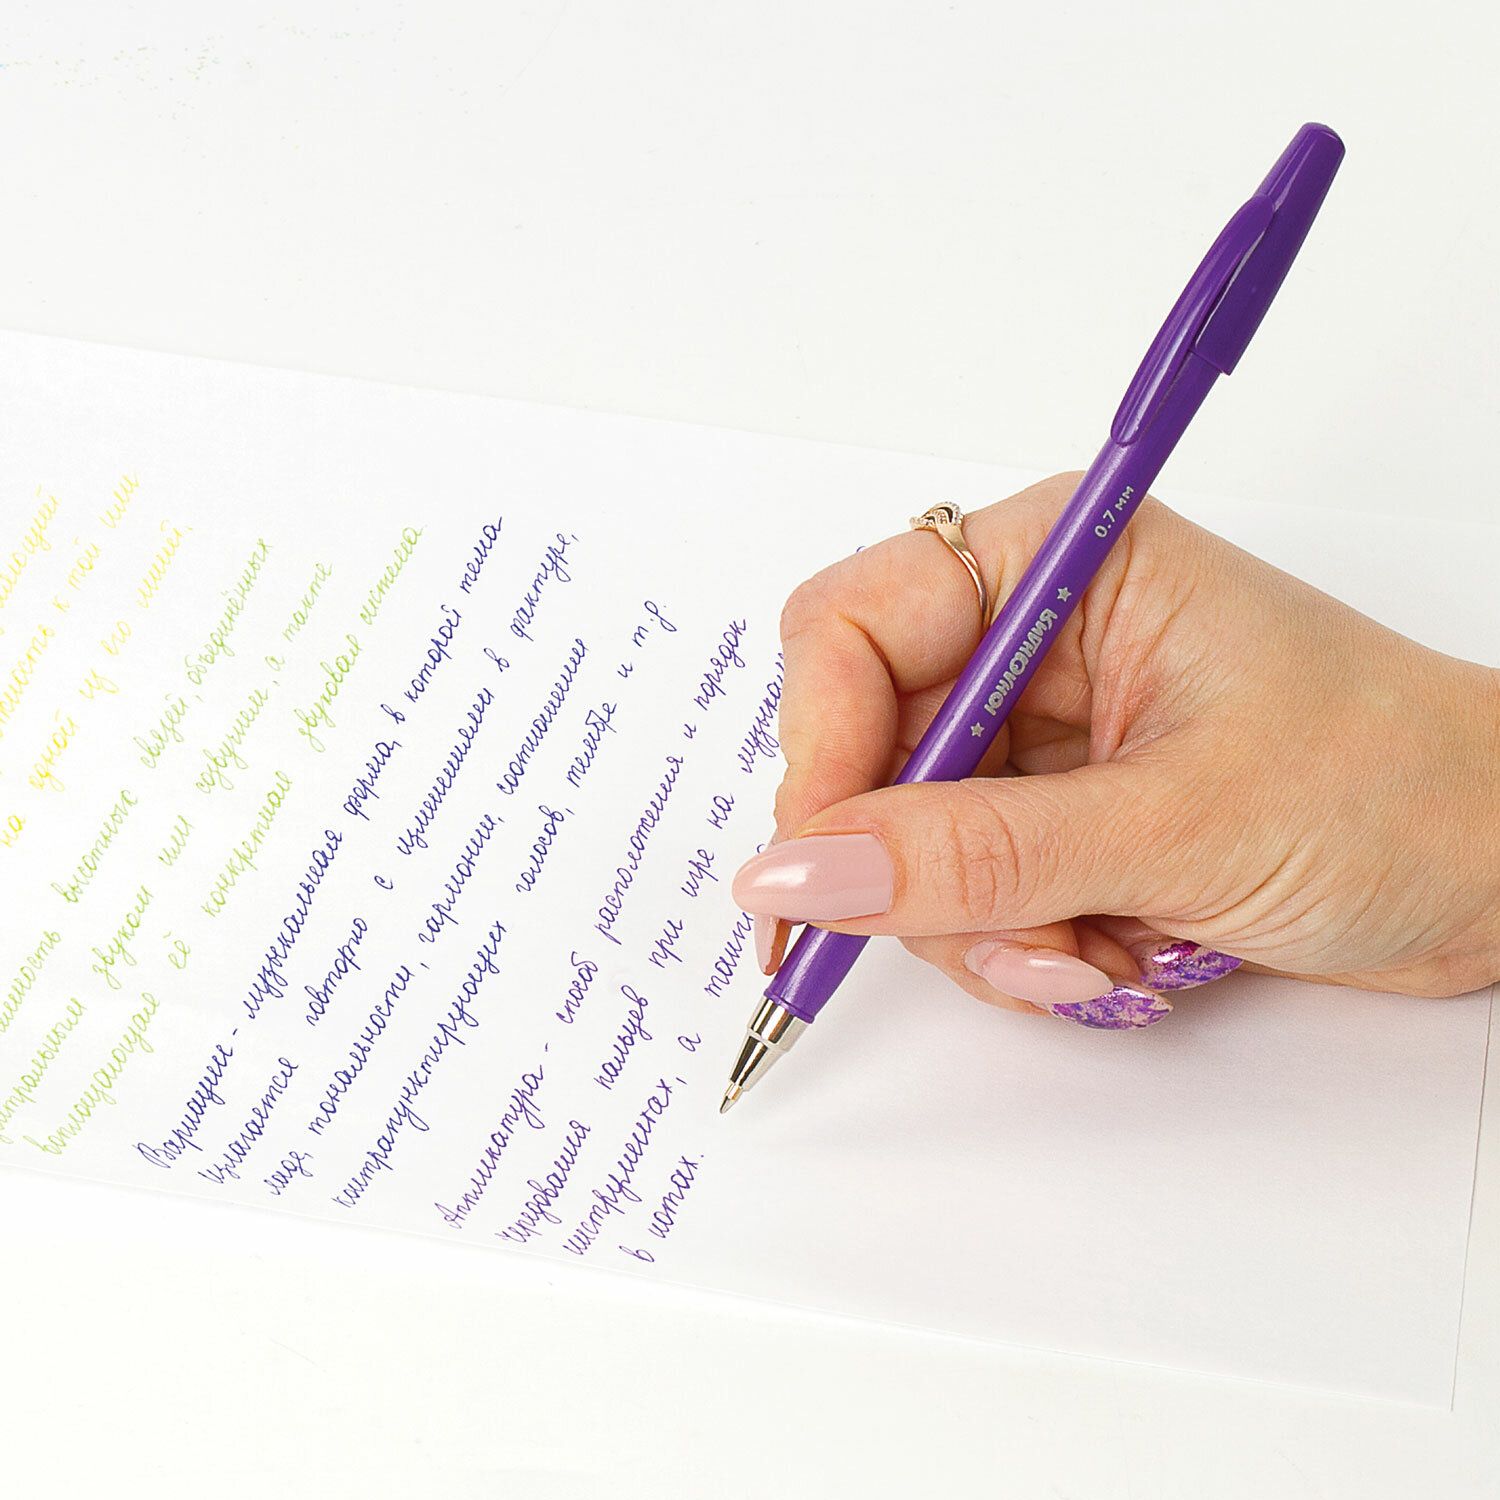 к той или
на одной из его линий.
высотных связей, объединённых
звуком или созвучием, а также
воплощающая её конкретная звуковая система.
Вариации - музыкальная форма, в которой тема
излагается повторно с изменениями в фактуре,
ладе, тональности, гармонии, соотношении
контрапунктирующих голосов, тембре и т.д.
Аппликатура - способ расположения и порядок
чередования пальцев при игре на
инструментах, а
в нотах.
ЮНЛАНДИЯ
0.7 мм